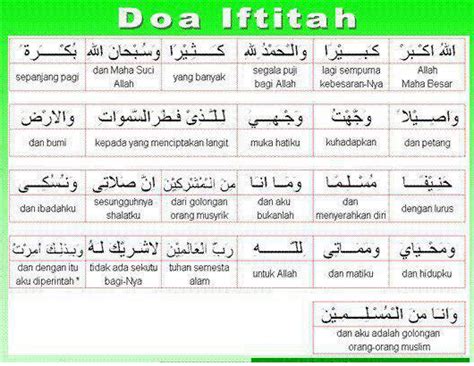 Doa Iftitah
اَللهُ اَكْبَرْ كَبِيْرًا وَالْحَمْدُ لِلّٰهِ كَثِيْرًا وَسُبْحَانَ اللهِ بُكْرَةً
Allah Maha Besar lagi sempurna kebesaran-Nya segala puji bagi Allah yang banyak dan Maha Suci Allah sepanjang pagi
وَاَصِيْلًا وَجَّهْتُ وَجْهِيَ لِلَّذِىْ فَطَرَ السَّموَاتِ وَالْاَرْضَ
dan petang kuhadapkan muka hatiku kepada yang menciptakan langit dan bumi
حَنِيْفًا مُسْلِمًا وَمَا اَنَا مِنَ الْمُشْرِكِيْنَ اِنَّ صَلَاتِى وَنُسُكِى
dengan lurus dan menyerahkan diri dan aku bukanlah dari golongan orang musyrik sesungguhnya shalatku dan ibadahku
وَمَحْيَايَ وَمَمَاتِى لِلّٰهِ رَبِّ الْعَالَمِيْنَ لَاشَرِيْكَ لَهُ وَبِذٰلِكَ اُمِرْتُ
dan hidupku dan matiku untuk Allah tuhan semesta alam tidak ada sekutu bagi-Nya dan dengan itu aku diperintah *
وَاَنَا مِنَ الْمُسْلِمِيْنَ
dan aku adalah golongan orang-orang muslim